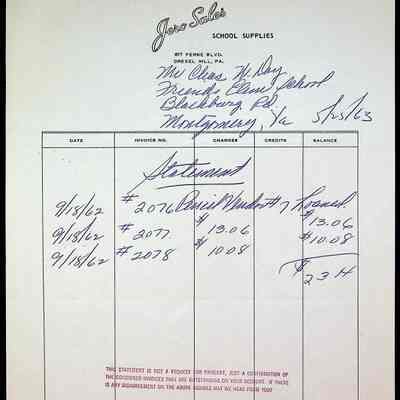 Jero Sales
SCHOOL SUPPLIES
817 FERNE BLVD.
DREXEL HILL, PA.
Mr Chas W. Day
Friends Elem School
Blackburg Rd.
Montgomery, Va 5/25/63
DATE INVOICE NO. CHARGES CREDITS BALANCE
Statement
9/18/62 # 2076 Pencil Vendor #7 Loaned
9/18/62 # 2077 $ 13.06 $ 13.06
9/18/62 # 2078 $ 10.08 $ 10.08
$ 23.14
THIS STATEMENT IS NOT A REQUEST FOR PAYMENT, JUST A CONFIRMATION OF
THE CONSIGNED INVOICES THAT ARE OUTSTANDING ON YOUR ACCOUNT. IF THERE
IS ANY DISAGREEMENT ON THE ABOVE FIGURES MAY WE HEAR FROM YOU?